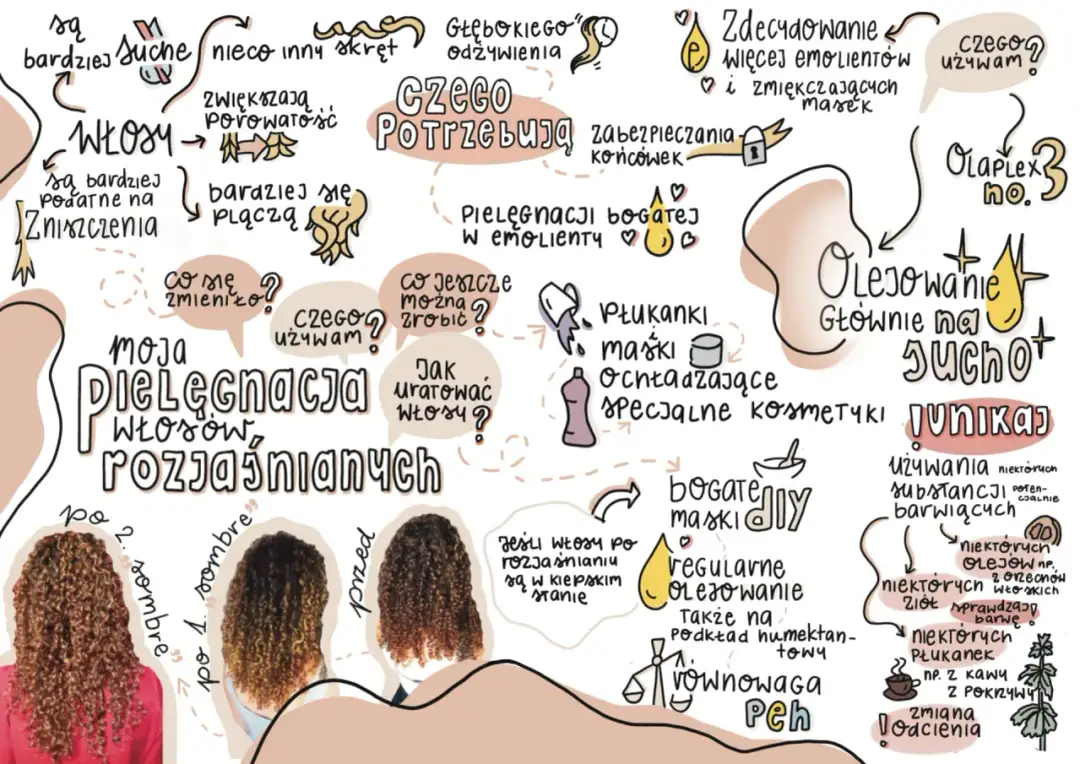 są
bardziej suche
nieco inny skręt
włosy
zwiększają
porowatość
są bardziej
podatne na
zniszczenia
bardziej się
plączą
czego
potrzebują
głębokiego
odżywienia
zabezpieczania
końcówek
pielęgnacji bogatej
w emolienty
e
Zdecydowanie
więcej emolientów
i zmiękczających
masek
czego
używam?
Olaplex
no. 3
Olejowanie
głównie na
sucho
co się
zmieniło?
czego
używam?
co jeszcze
można
zrobić?
jak
uratować
włosy?
moja
pielęgnacja
włosów,
rozjaśnianych
płukanki
i
maski
ochładzające
specjalne kosmetyki
jeśli włosy po
rozjaśnianiu
są w kiepskim
stanie
bogate
maski diy
regularne
olejowanie
także na
podkład humektan-
towy
równowaga
peh
!unikaj
używania niektórych
substancji poten-
cjalnie
barwiących
niektórych
olejów np.
z orzechów
włoskich
niektórych
ziół
sprawdzaj
barwę!
niektórych
płukanek
np. z kawy
z pokrzywy
!zmiana
odcienia
po 2. "sombre"
po 1. "sombre"
przed